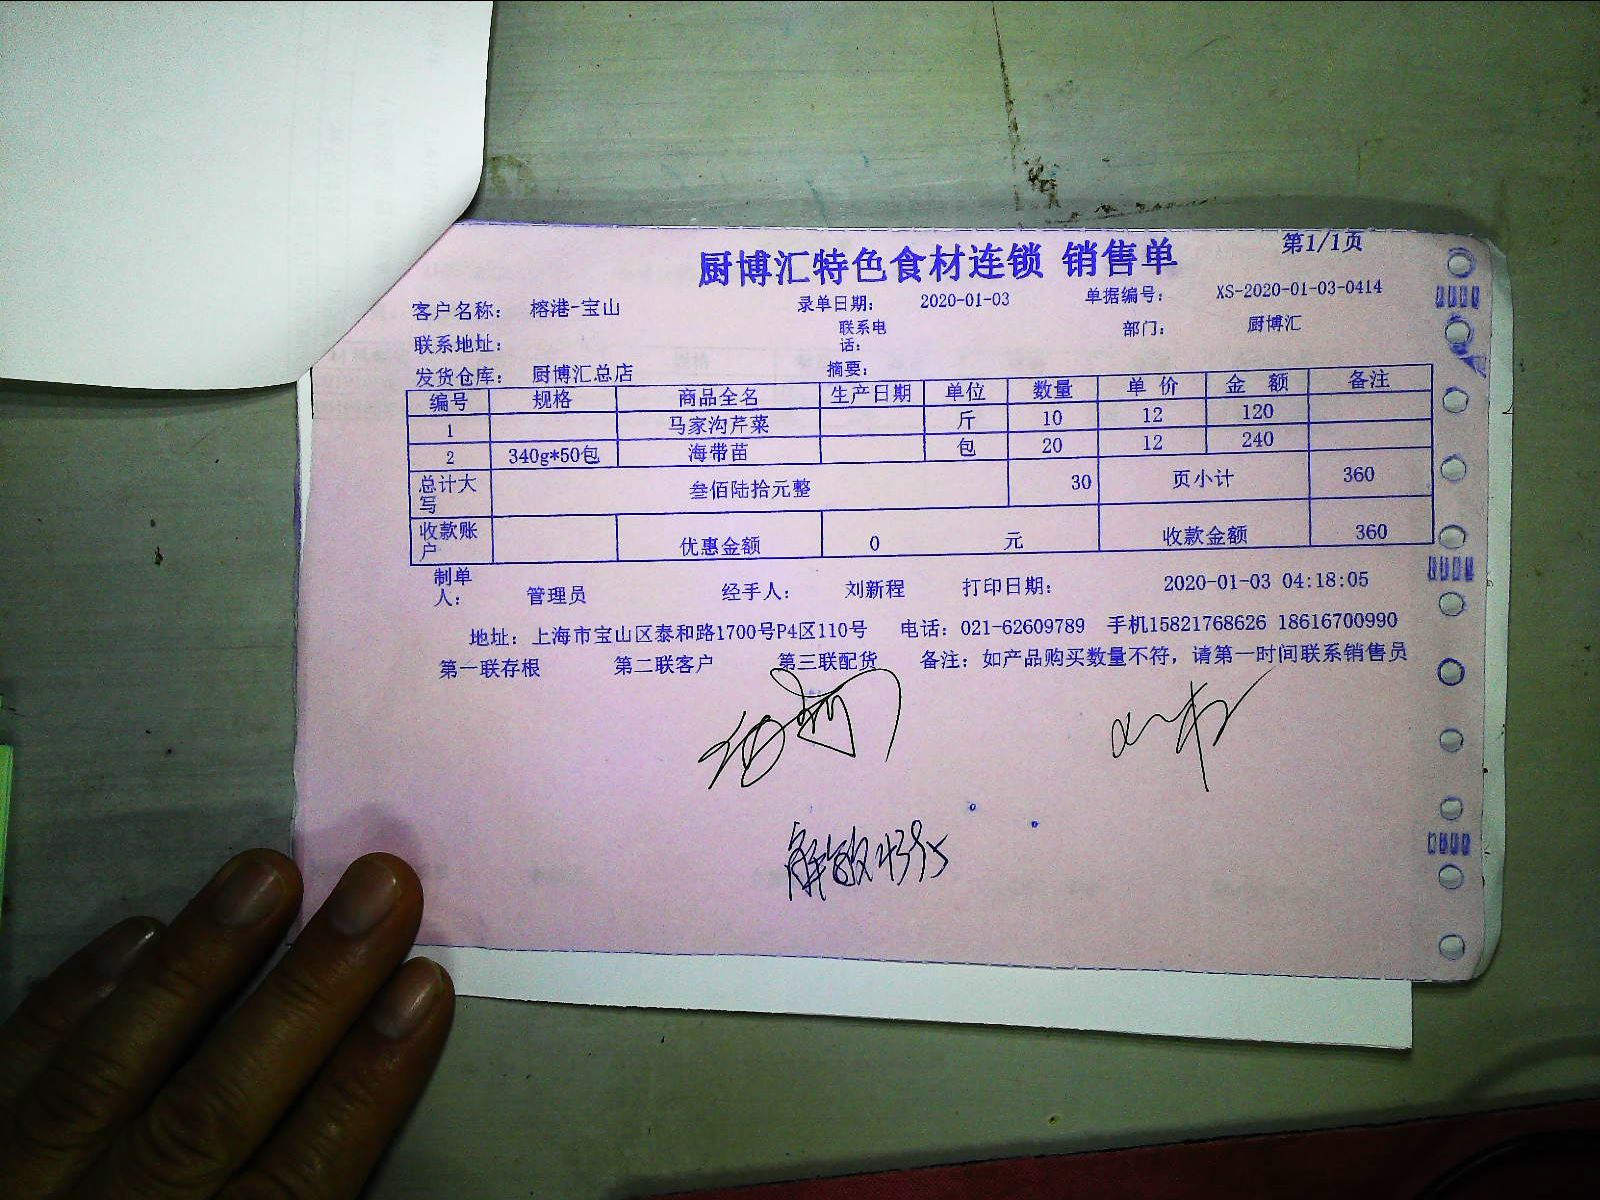 厨博汇特色食材连锁 销售单 第1/1页
客户名称: 榕港-宝山 录单日期: 2020-01-03 单据编号: XS-2020-01-03-0414
联系地址: 联系电话: 部门: 厨博汇
发货仓库: 厨博汇总店 摘要:
编号 规格 商品全名 生产日期 单位 数量 单 价 金 额 备注
1 马家沟芹菜 斤 10 12 120
2 340g*50包 海带苗 包 20 12 240
总计大写 叁佰陆拾元整 30 页小计 360
收款账户 优惠金额 0 元 收款金额 360
制单人: 管理员 经手人: 刘新程 打印日期: 2020-01-03 04:18:05
地址: 上海市宝山区泰和路1700号P4区110号 电话: 021-62609789 手机15821768626 18616700990
第一联存根 第二联客户 第三联配货 备注: 如产品购买数量不符, 请第一时间联系销售员